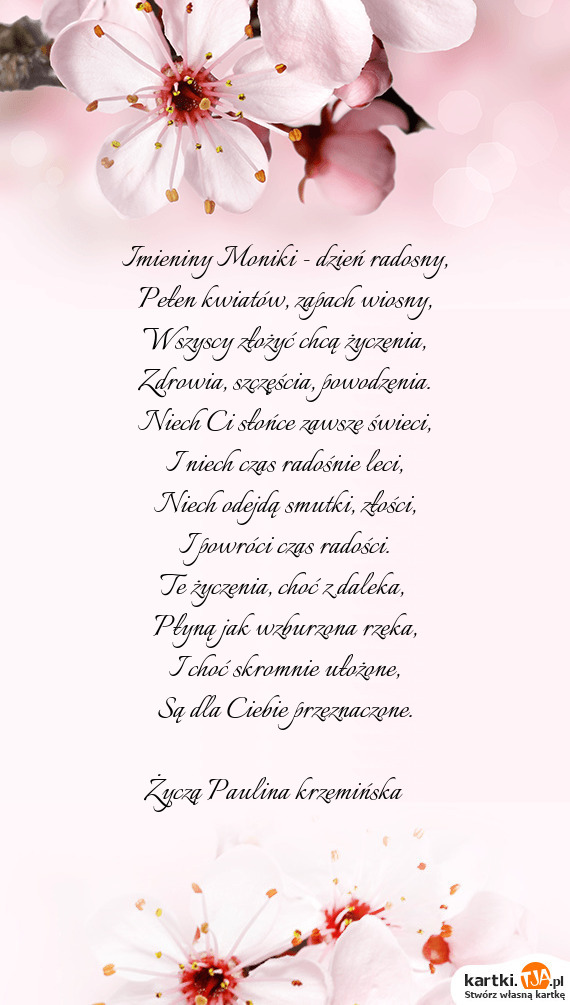 Imieniny Moniki - dzień radosny,
Pełen kwiatów, zapach wiosny,
Wszyscy złożyć chcą życzenia,
Zdrowia, szczęścia, powodzenia.
Niech Ci słońce zawsze świeci,
I niech czas radośnie leci,
Niech odejdą smutki, złości,
I powróci czas radości.
Te życzenia, choć z daleka,
Płyną jak wzburzona rzeka,
I choć skromnie ułożone,
Są dla Ciebie przeznaczone.
Życzą Paulina krzemińska
kartki.TJA.pl
Stwórz własną kartkę